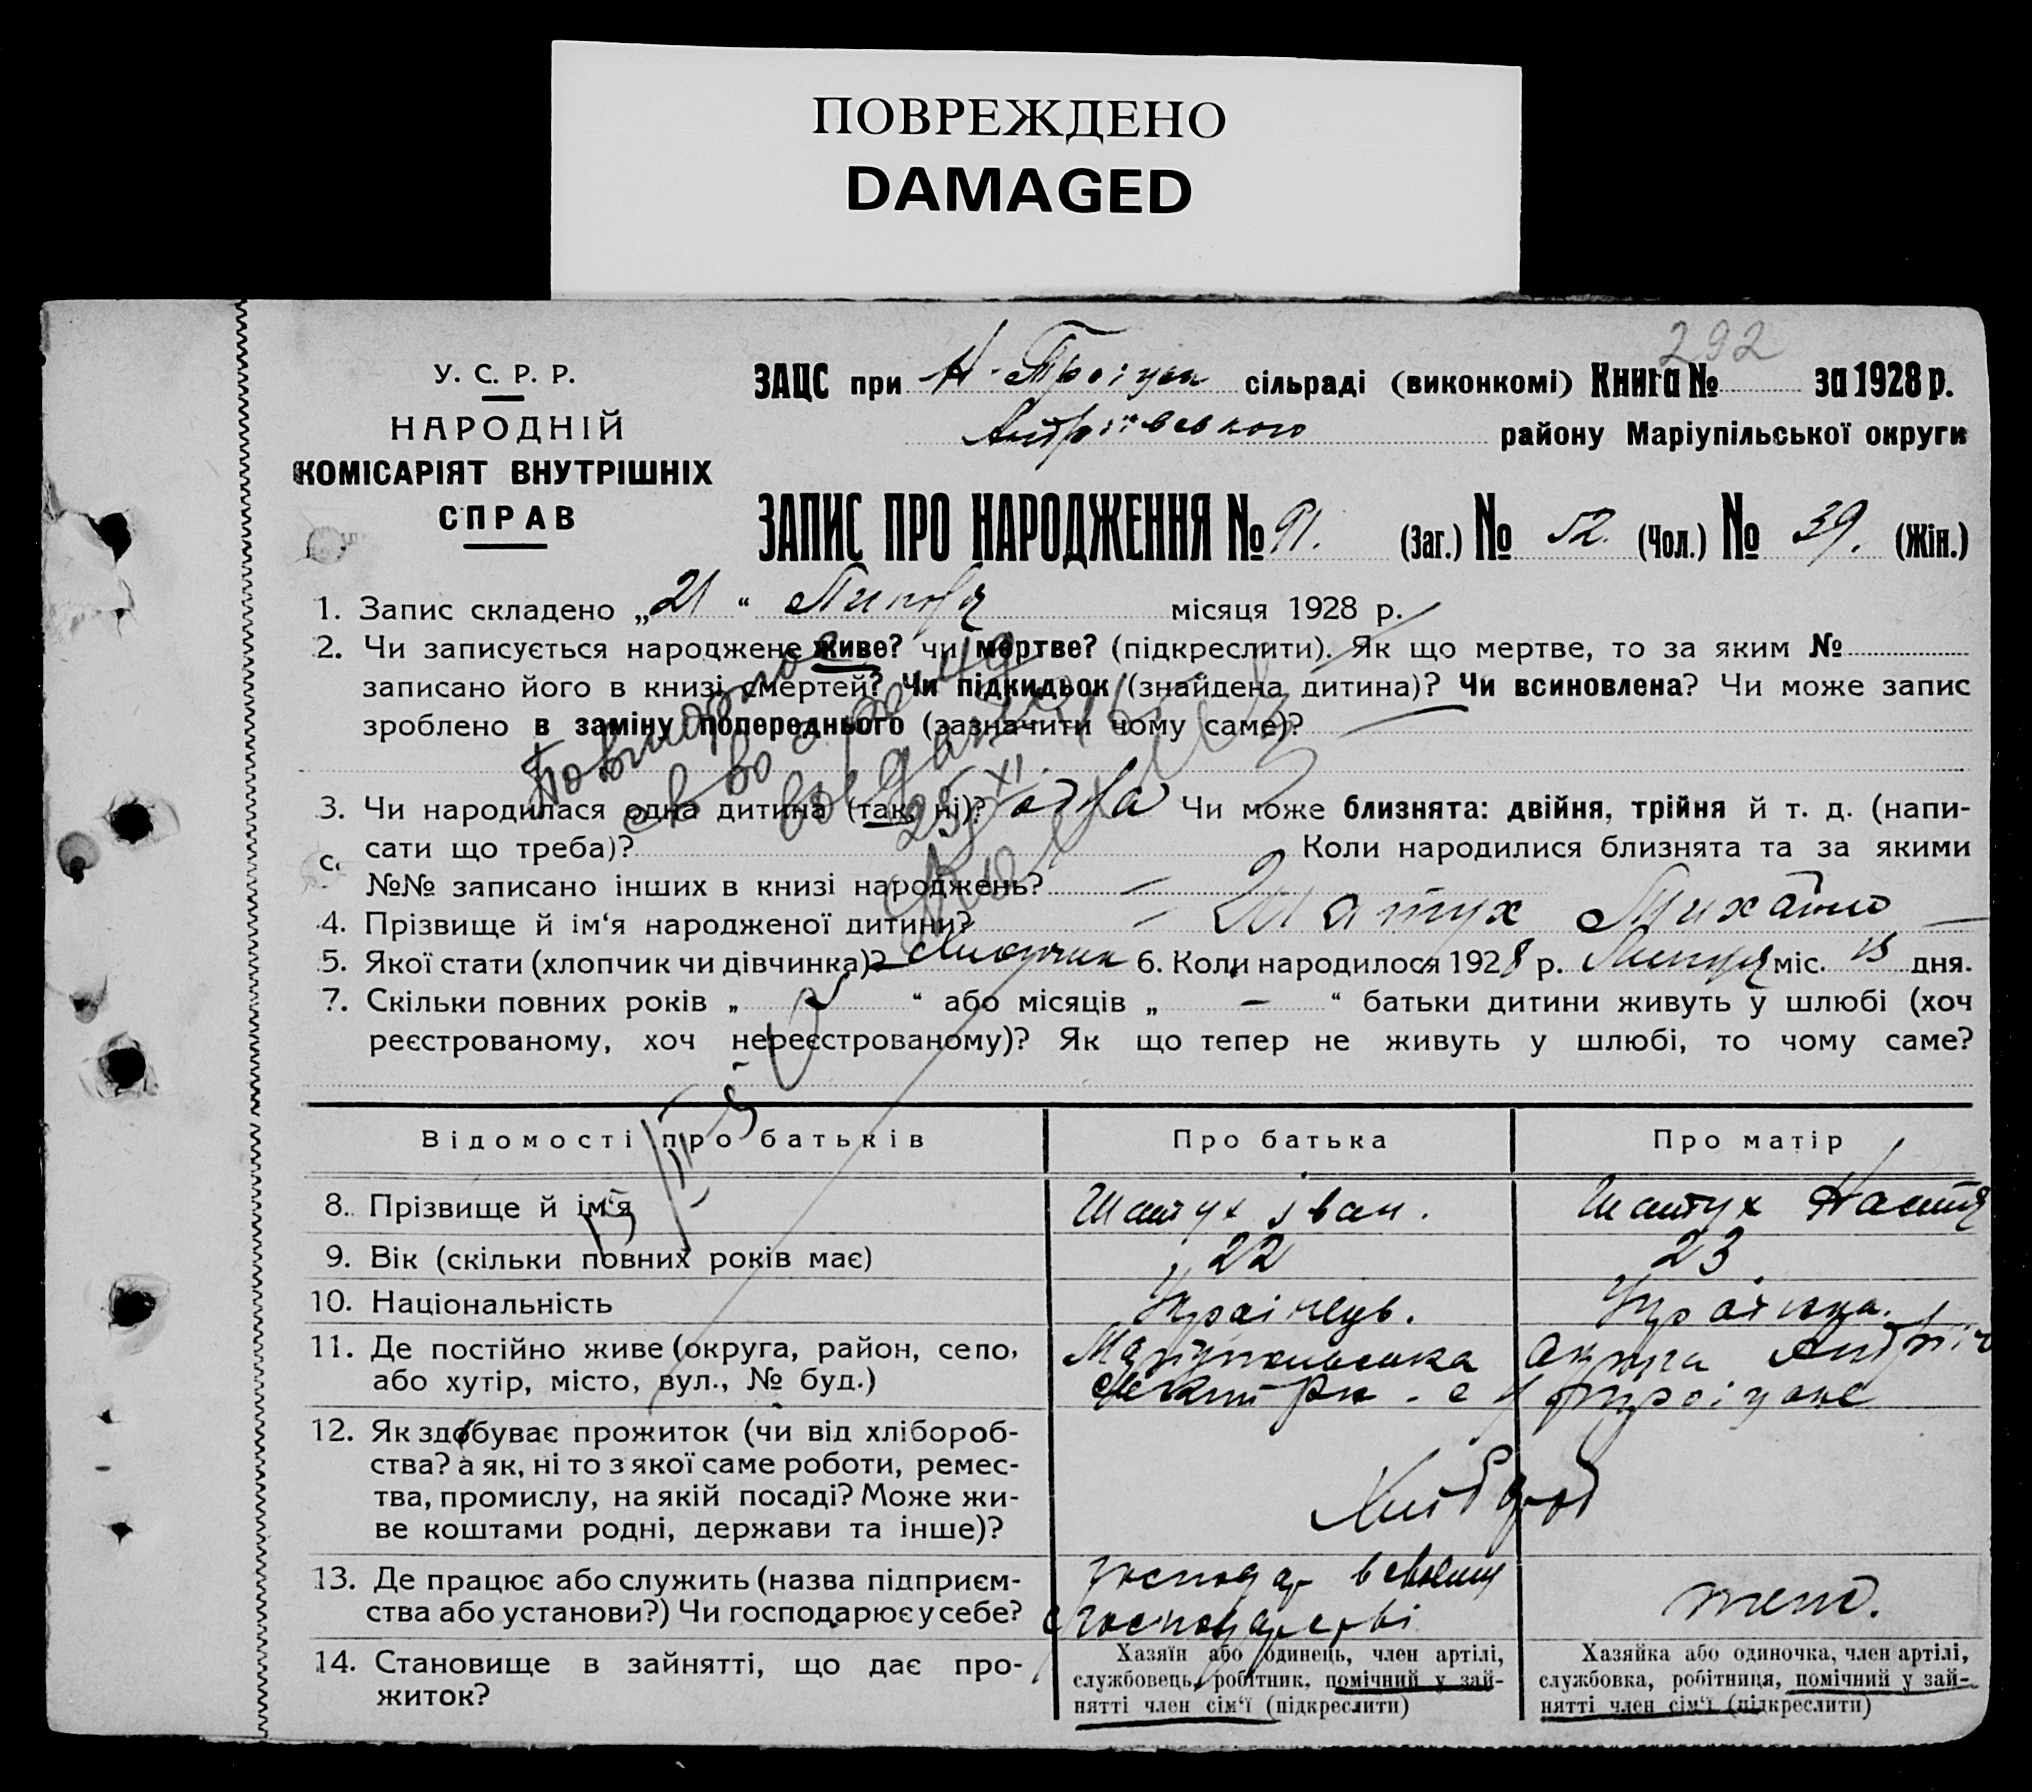 ПОВРЕЖДЕНО
DAMAGED
292
У. С. Р. Р.
НАРОДНІЙ
КОМІСАРІЯТ ВНУТРІШНІХ
СПРАВ
ЗАЦС при Н-Троіцкій сільраді (виконкомі) Книга № за 1928 р.
Андріївського району Маріупільської округи
ЗАПИС ПРО НАРОДЖЕННЯ № 91. (Заг.) № 52. (Чол.) № 39. (Жін.)
1. Запис складено „21“ Липня місяця 1928 р.
2. Чи записується народжене живе? чи мертве? (підкреслити). Як що мертве, то за яким №
записано його в книзі смертей? Чи підкидьок (знайдена дитина)? Чи всиновлена? Чи може запис
зроблено в заміну попереднього (зазначити чому саме)?
Повторное
св во о рожд
выдано
25/XI
3. Чи народилася одна дитина (так, ні)? одна Чи може близнята: двійня, трійня й т. д. (напи-
сати що треба)? Коли народилися близнята та за якими
№№ записано інших в книзі народжень? —
4. Прізвище й ім‘я народженої дитини? — Шатух Михайло —
5. Якої стати (хлопчик чи дівчинка)? Хлопчик 6. Коли народилося 1928 р. Липня міс. 15 дня.
7. Скільки повних років „ “ або місяців „ — “ батьки дитини живуть у шлюбі (хоч
реєстрованому, хоч нереєстрованому)? Як що тепер не живуть у шлюбі, то чому саме?
Відомості про батьків Про батька Про матір
8. Прізвище й ім‘я Шатух Іван. Шатух Настя
9. Вік (скільки повних років має) 22 23
10. Національність Украінець. Украінка.
11. Де постійно живе (округа, район, село, Маріупольська округа Андрів
або хутір, місто, вул., № буд.)
12. Як здобуває прожиток (чи від хлібороб-
ства? а як, ні то з якої саме роботи, ремес-
тва, промислу, на якій посаді? Може жи-
ве коштами родні, держави та інше)?
Хлібороб
13. Де працює або служить (назва підприєм- господар в своему
ства або установи?) Чи господарює у себе? господарстві теж.
14. Становище в зайнятті, що дає про-
житок?
Хазяїн або одинець, член артілі,
службовець, робітник, помічний у зай-
нятті член сім‘ї (підкреслити)
Хазяйка або одиночка, член артілі,
службовка, робітниця, помічний у зай-
нятті член сім‘ї (підкреслити)